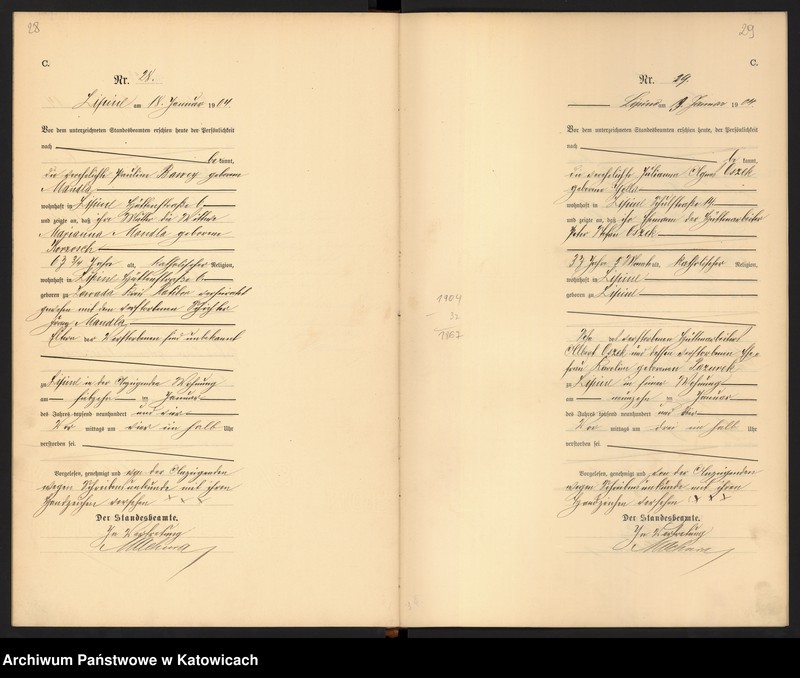 28
C.
Nr. 28.
Lipine am 18. Januar 1904.
Vor dem unterzeichneten Standesbeamten erschien heute der Persönlichkeit
nach
be kannt,
die verehelichte Pauline geborene
Mandla
wohnhaft in Lipine Hüttenstraße 6
und zeigte an, daß ihre Mutter die Witwe
Marianna Mandla geborene
67 3/4 Jahre alt, katholischer Religion,
wohnhaft in Lipine Hüttenstraße 6
geboren zu Zawada Kreis Ratibor verheiratet
gewesen mit dem verstorbenen
Mandla
Eltern der Verstorbenen sind unbekannt
zu Lipine in der Anzeigenden Wohnung
am Januar
des Jahres tausend neunhundert und vier
Vor mittags um vier ein halb Uhr
verstorben sei.
Vorgelesen, genehmigt und von der Anzeigenden
wegen Schreibensunkunde mit ihren
Handzeichen versehen x x x
Der Standesbeamte.
In Vertretung
29
C.
Nr. 29.
Lipine am Januar 1904.
Vor dem unterzeichneten Standesbeamten erschien heute, der Persönlichkeit
nach
be kannt,
die verehelichte Julianna Agnes Oszek
geborene
wohnhaft in Lipine Schulstraße 14
und zeigte an, daß ihr Ehemann der Hüttenarbeiter
Peter Oszek
37 Jahre Monate alt, katholischer Religion,
wohnhaft in Lipine
geboren zu Lipine
1904
1867
Sohn des verstorbenen Hüttenarbeiters
Albert Oszek und dessen verstorbenen Ehe-
frau Karoline geborenen
zu Lipine in seiner Wohnung
am Januar
des Jahres tausend neunhundert und vier
Vor mittags um drei ein halb Uhr
verstorben sei.
Vorgelesen, genehmigt und von der Anzeigenden
wegen Schreibensunkunde mit ihren
Handzeichen versehen x x x
Der Standesbeamte.
In Vertretung
Archiwum Państwowe w Katowicach